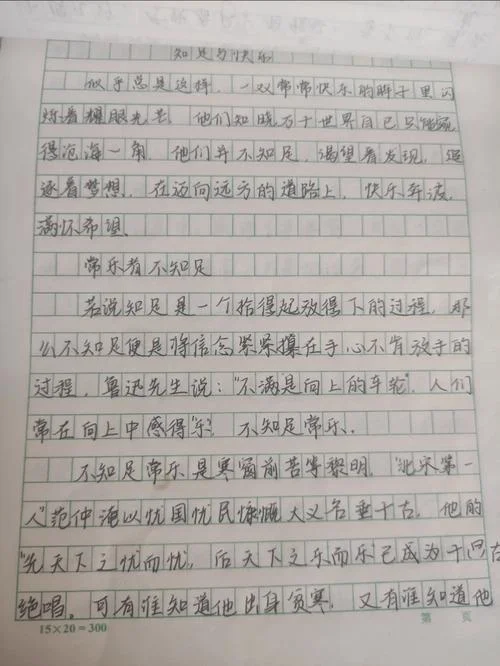 知足与快乐
似乎总是这样,一双常常快乐的眸子里闪
烁着耀眼光芒。他们知晓万千世界自己只能窥
得沧海一角,他们并不知足,渴望着发现,追
逐着梦想,在迈向远方的道路上,快乐奔波,
满怀希望。
常乐者不知足
若说知足是一个拾得起放得下的过程,那
么不知足便是将信念紧紧攥在手心不肯放手的
过程,鲁迅先生说:“不满是向上的车轮”,人们
常在向上中感得“乐”,不知足常乐.
不知足常乐是寒窗前苦等黎明,“北宋第一
人”范仲淹以忧国忧民慷慨大义名垂千古,他的
“先天下之忧而忧,后天下之乐而乐已成为千古
绝唱。可有谁知道他出身贫寒,又有谁知道他
15×20=300
第 页